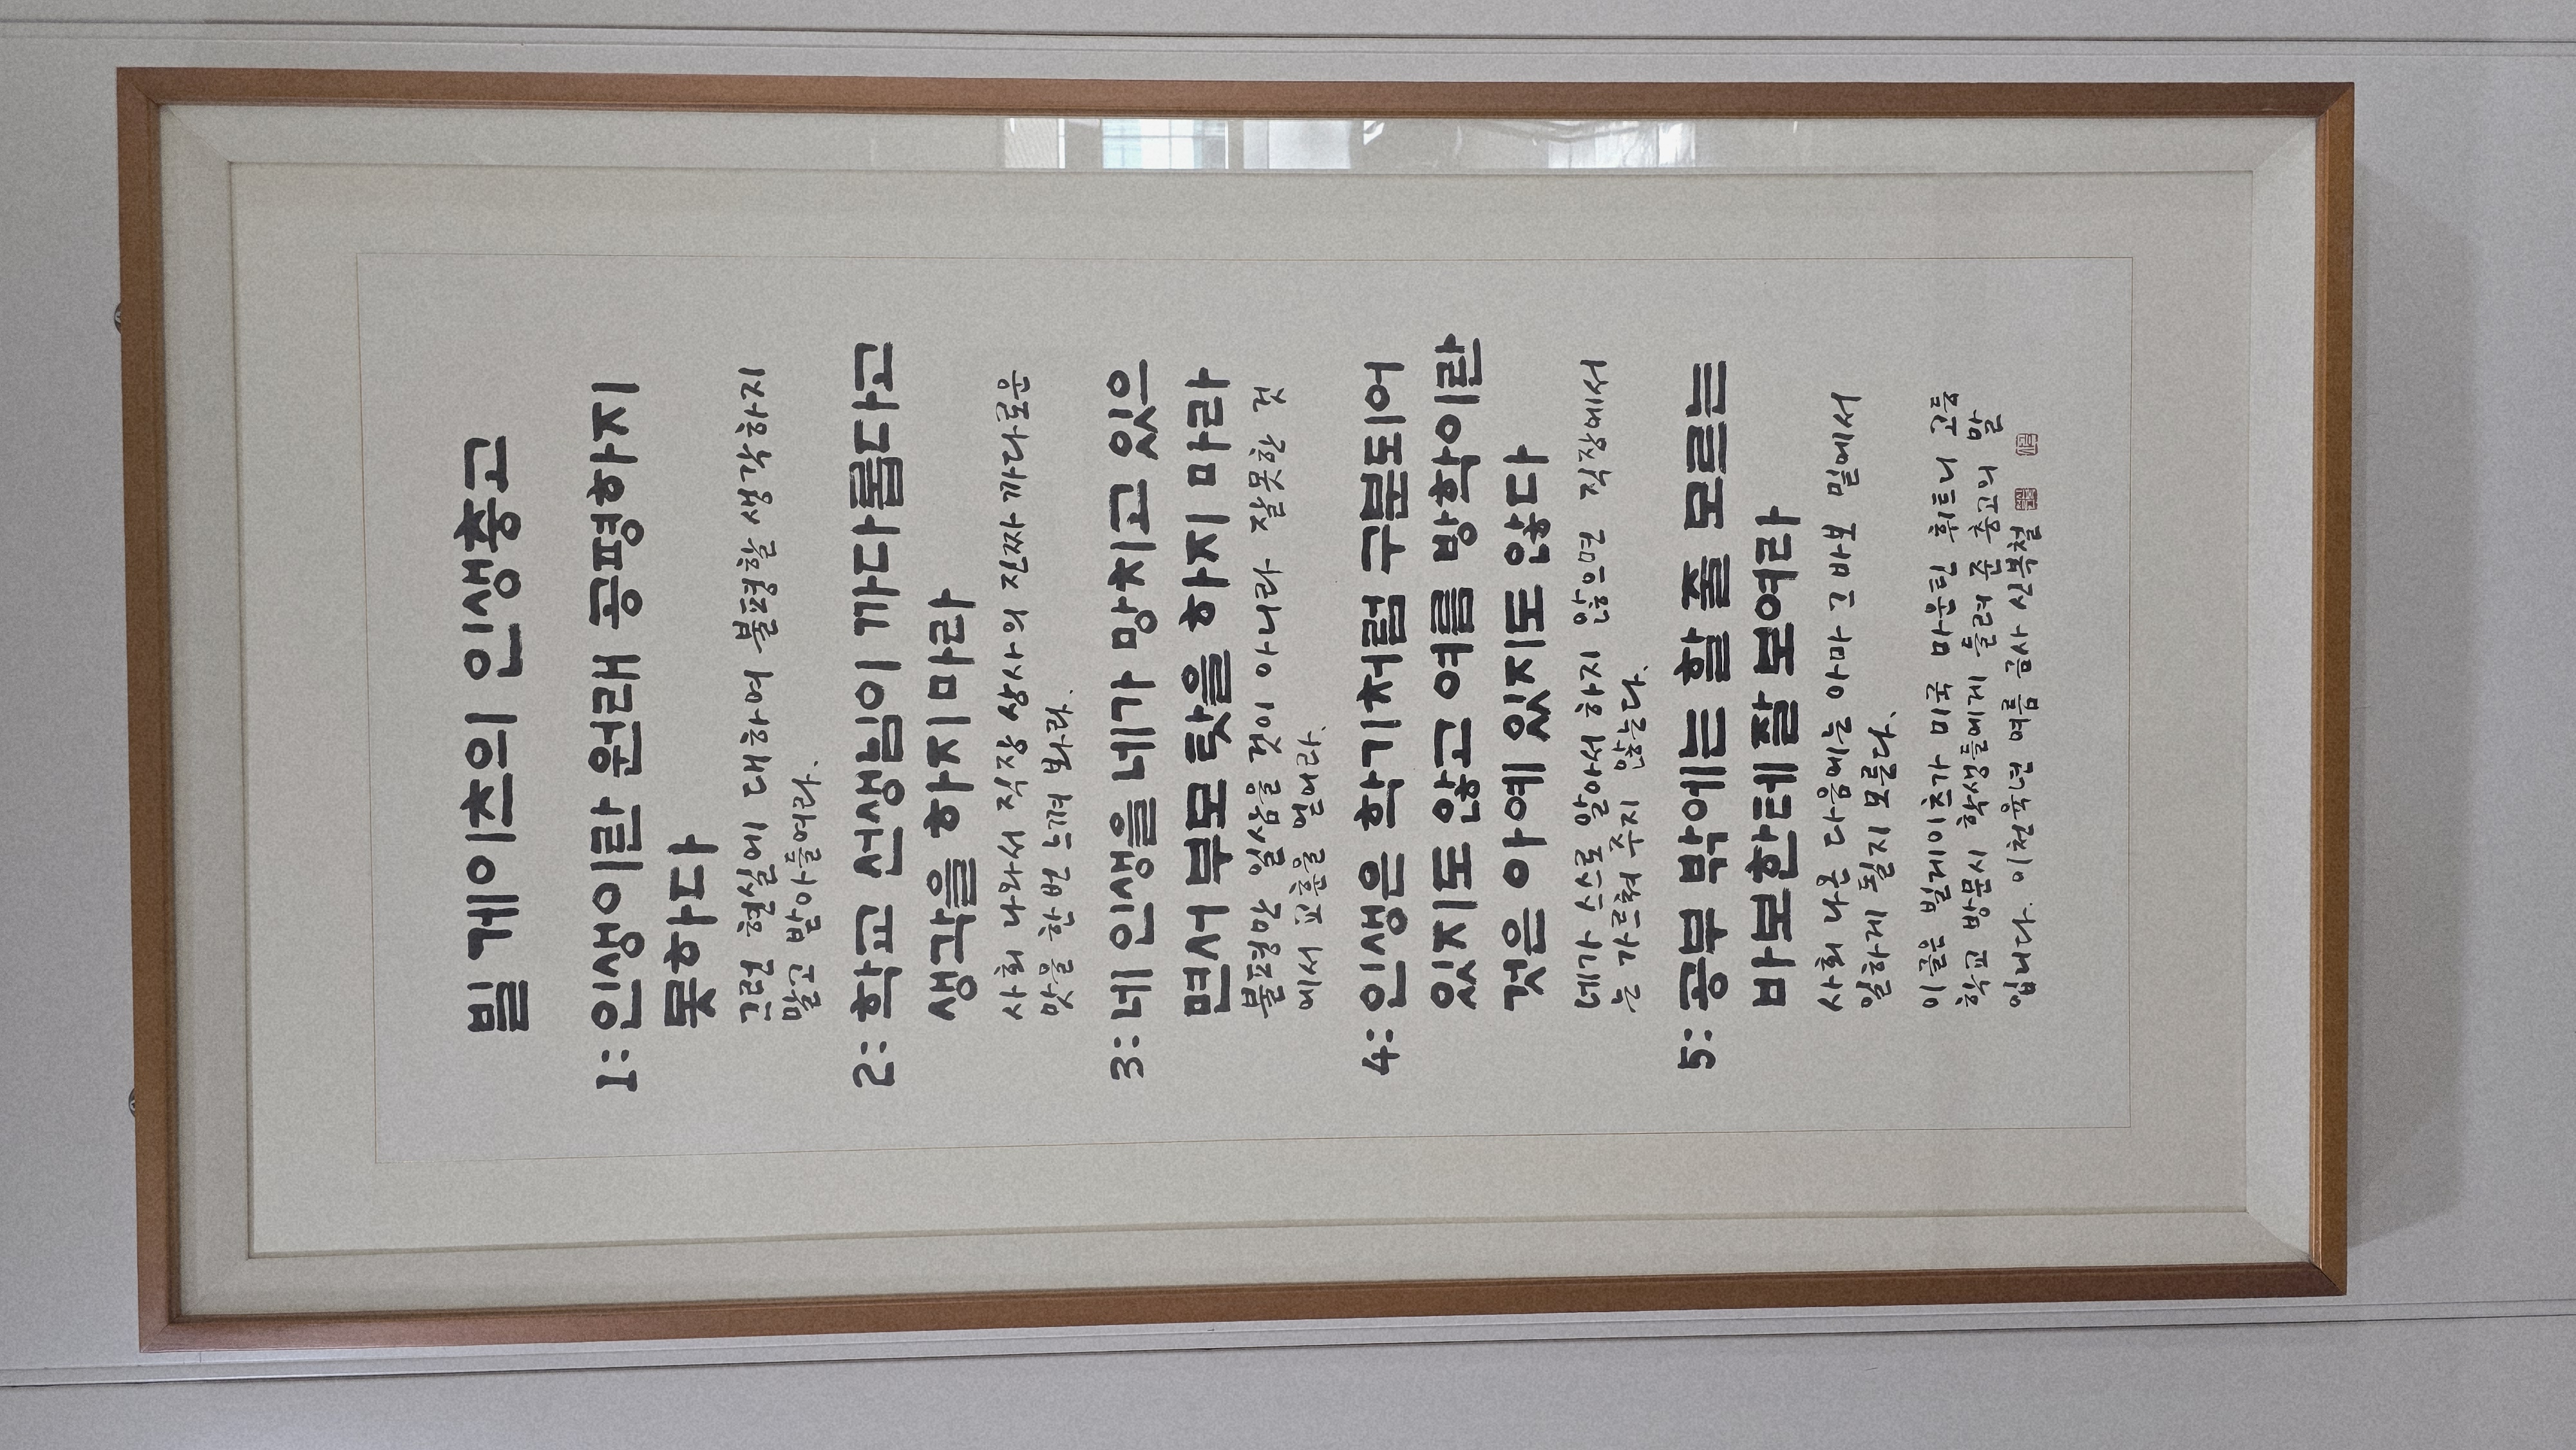 빌 게이츠의 인생충고
1: 인생이란 원래 공평하지
못하다
그런 현실에 대하여 불평할 생각하지
말고 받아들여라.
2: 학교 선생님이 까다롭다고
생각을 하지 마라
사회 나와서 직장 상사의 진짜 까다로운
맛을 한번 느껴 봐라.
3: 네 인생을 네가 망치고 있으
면서 부모 탓을 하지 마라
불평만 일삼을 것이 아니라 잘못한 것
에서 교훈을 얻어라.
4: 인생은 학기처럼 구분되어
있지도 않고 여름 방학이란
것은 아예 있지도 않다
네가 스스로 알아서 하지 않으면 직장에서
는 가르쳐 주지 않는다.
5: 공부 밖에는 할 줄 모르는
바보한테 잘 보여라
사회 나온 다음에는 아마 그 바보 밑에서
일하게 될지 모른다.
이글은 빌게이츠가 미국 마운틴 휘트니 고등
학교 방문시 학생들에게 들려 준 충고의 말
입니다. 이천육년 여름 금사 신복철